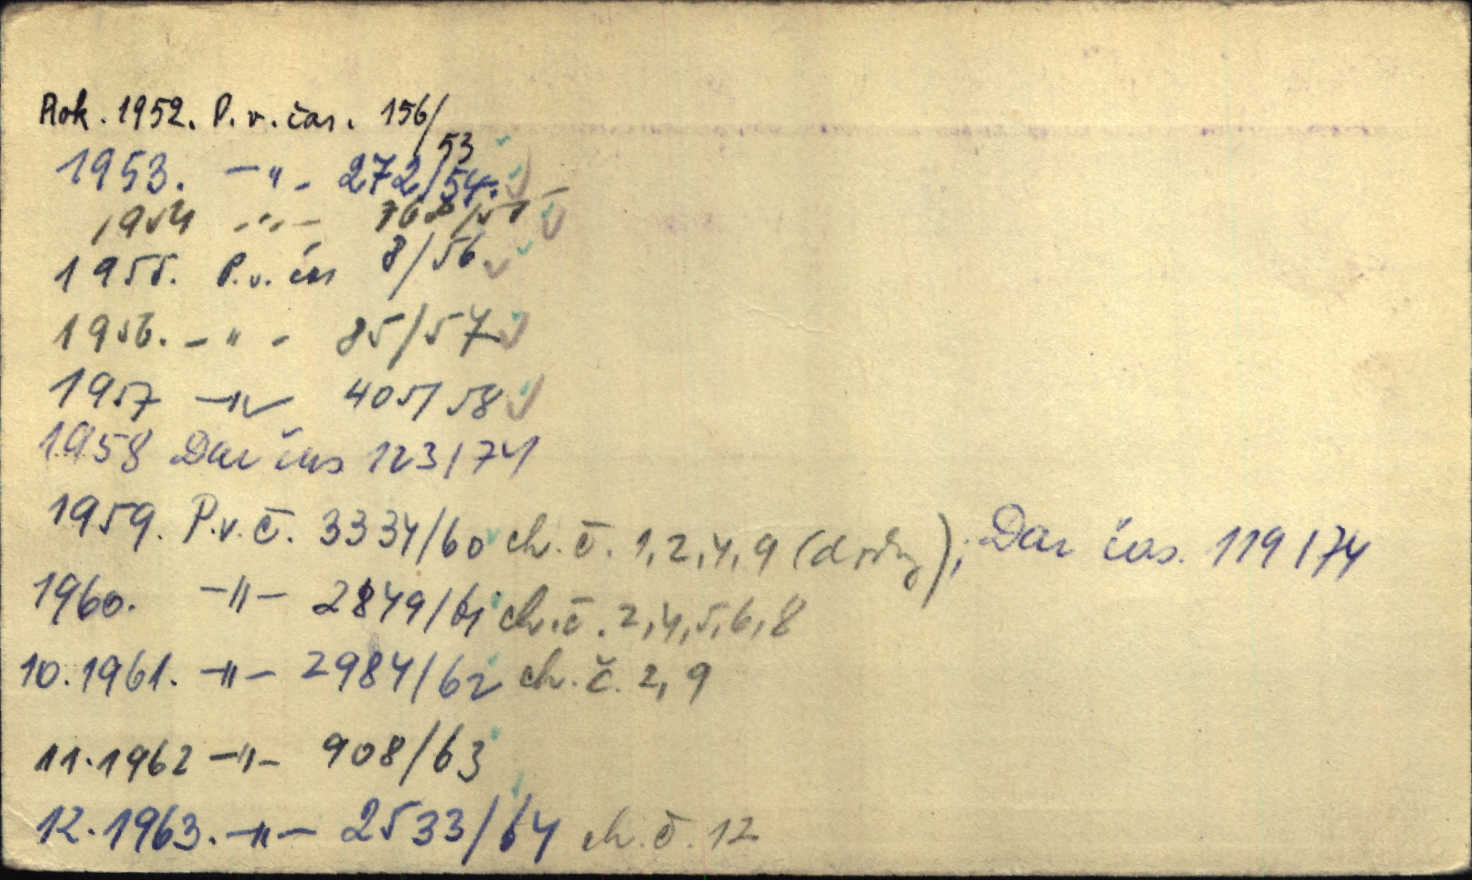 Rok. 1952. P.v.čas. 156/53
1953. -"- 272/54.
1954 -"- 768/55
1955. P.v.čas 8/56.
1956. -"- 85/57
1957 -"- 405/58
1958 Dar čas 123/74
1959. P.v.č. 3334/60 ch.č. 1,2,4,9 ; Dar čas. 119/74
1960. -"- 2849/61 ch.č. 2,4,5,6,8
10.1961. -"- 2984/62 ch.č. 2,9
11.1962 -"- 908/63
12.1963. -"- 2533/64 ch.č. 12